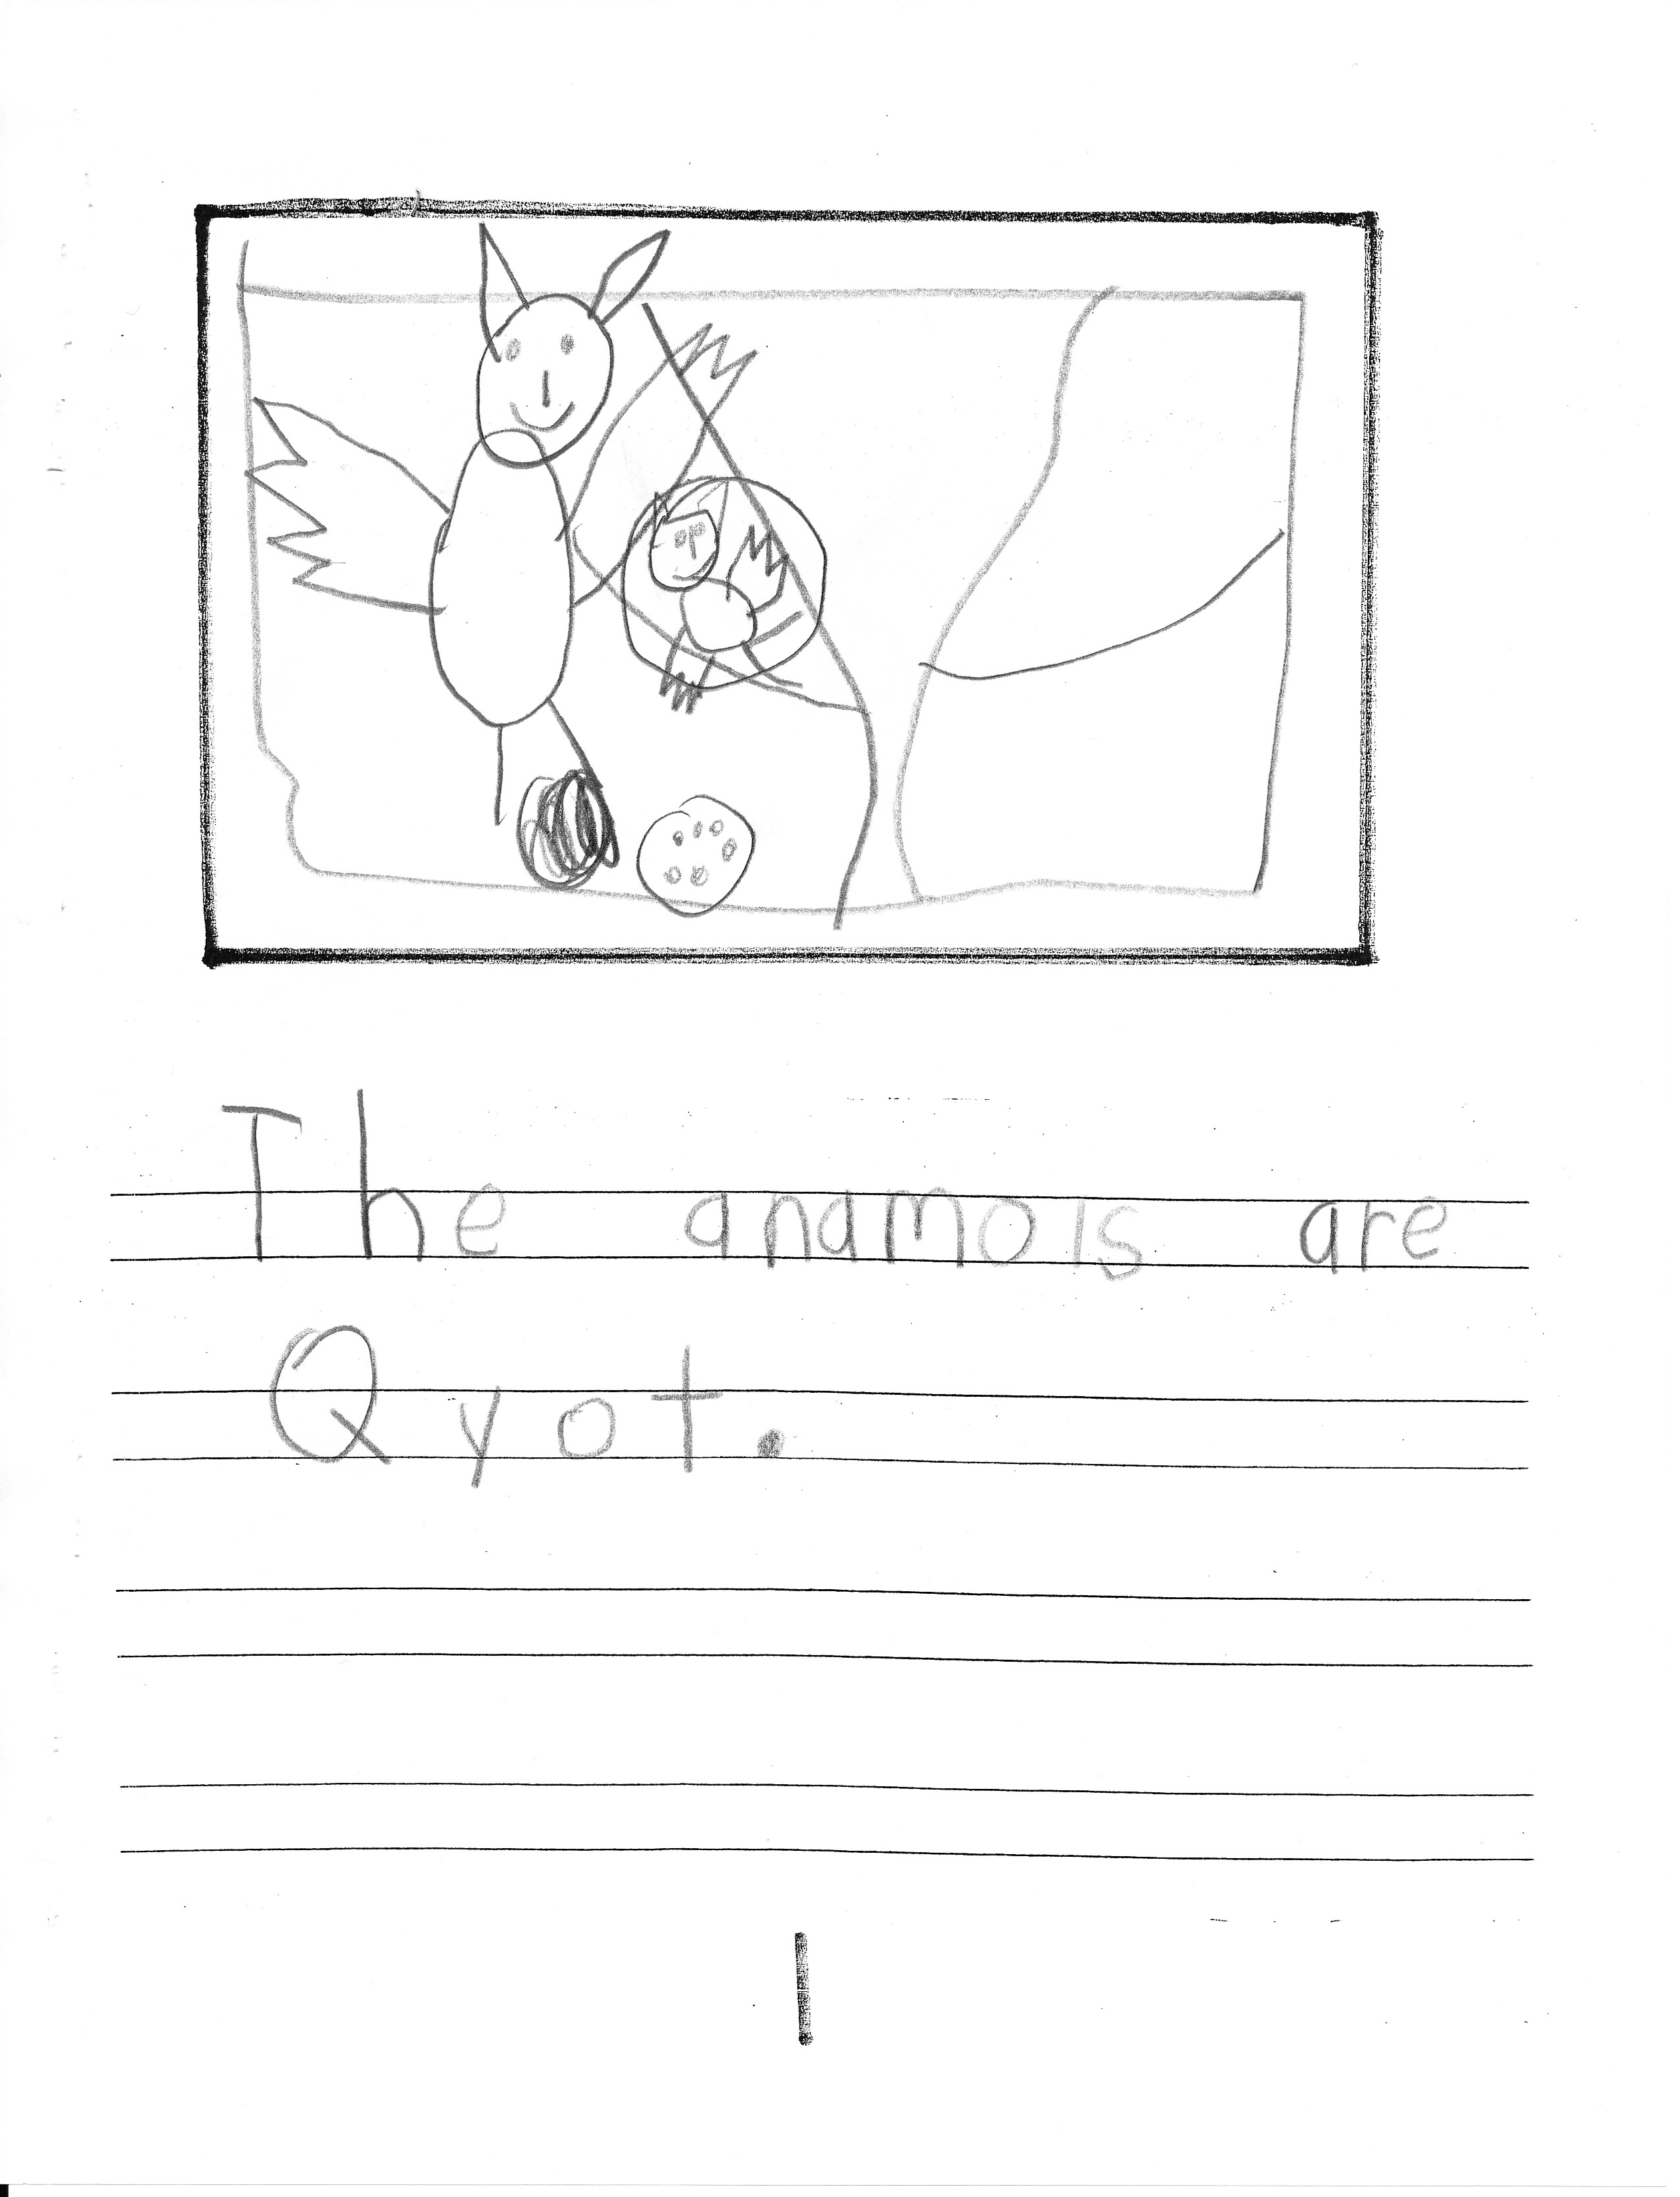 The anamols are
Qyot.
1